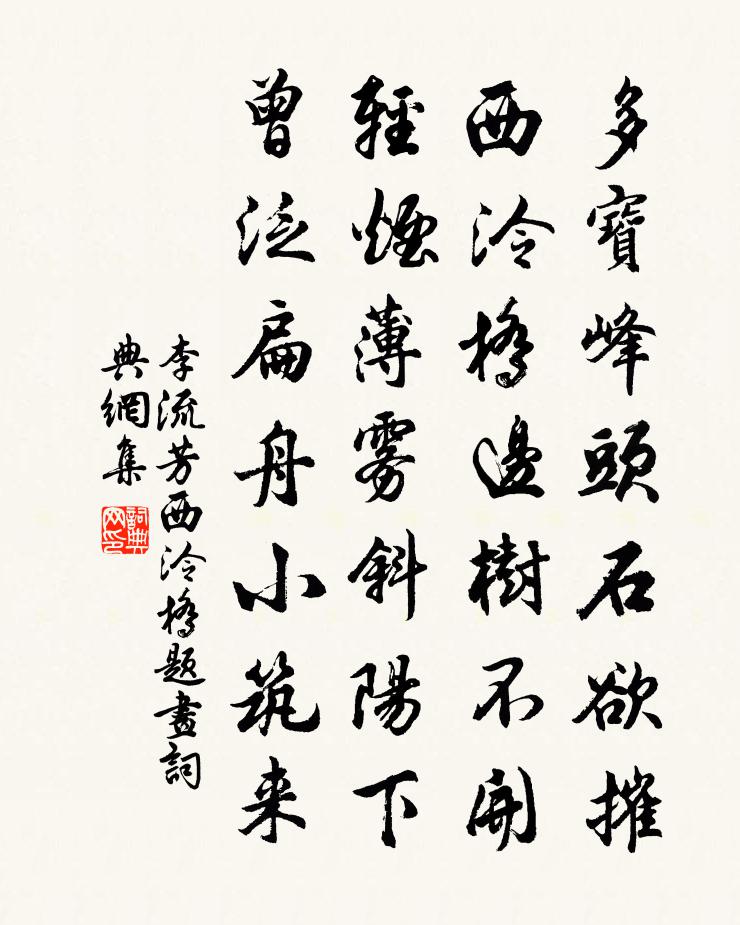 多寶峰頭石欲摧
西泠橋邊樹不開
輕煙薄雾斜陽下
曾泛扁舟小筑来
李流芳西泠橋题畫詞
典網集
詞典网印